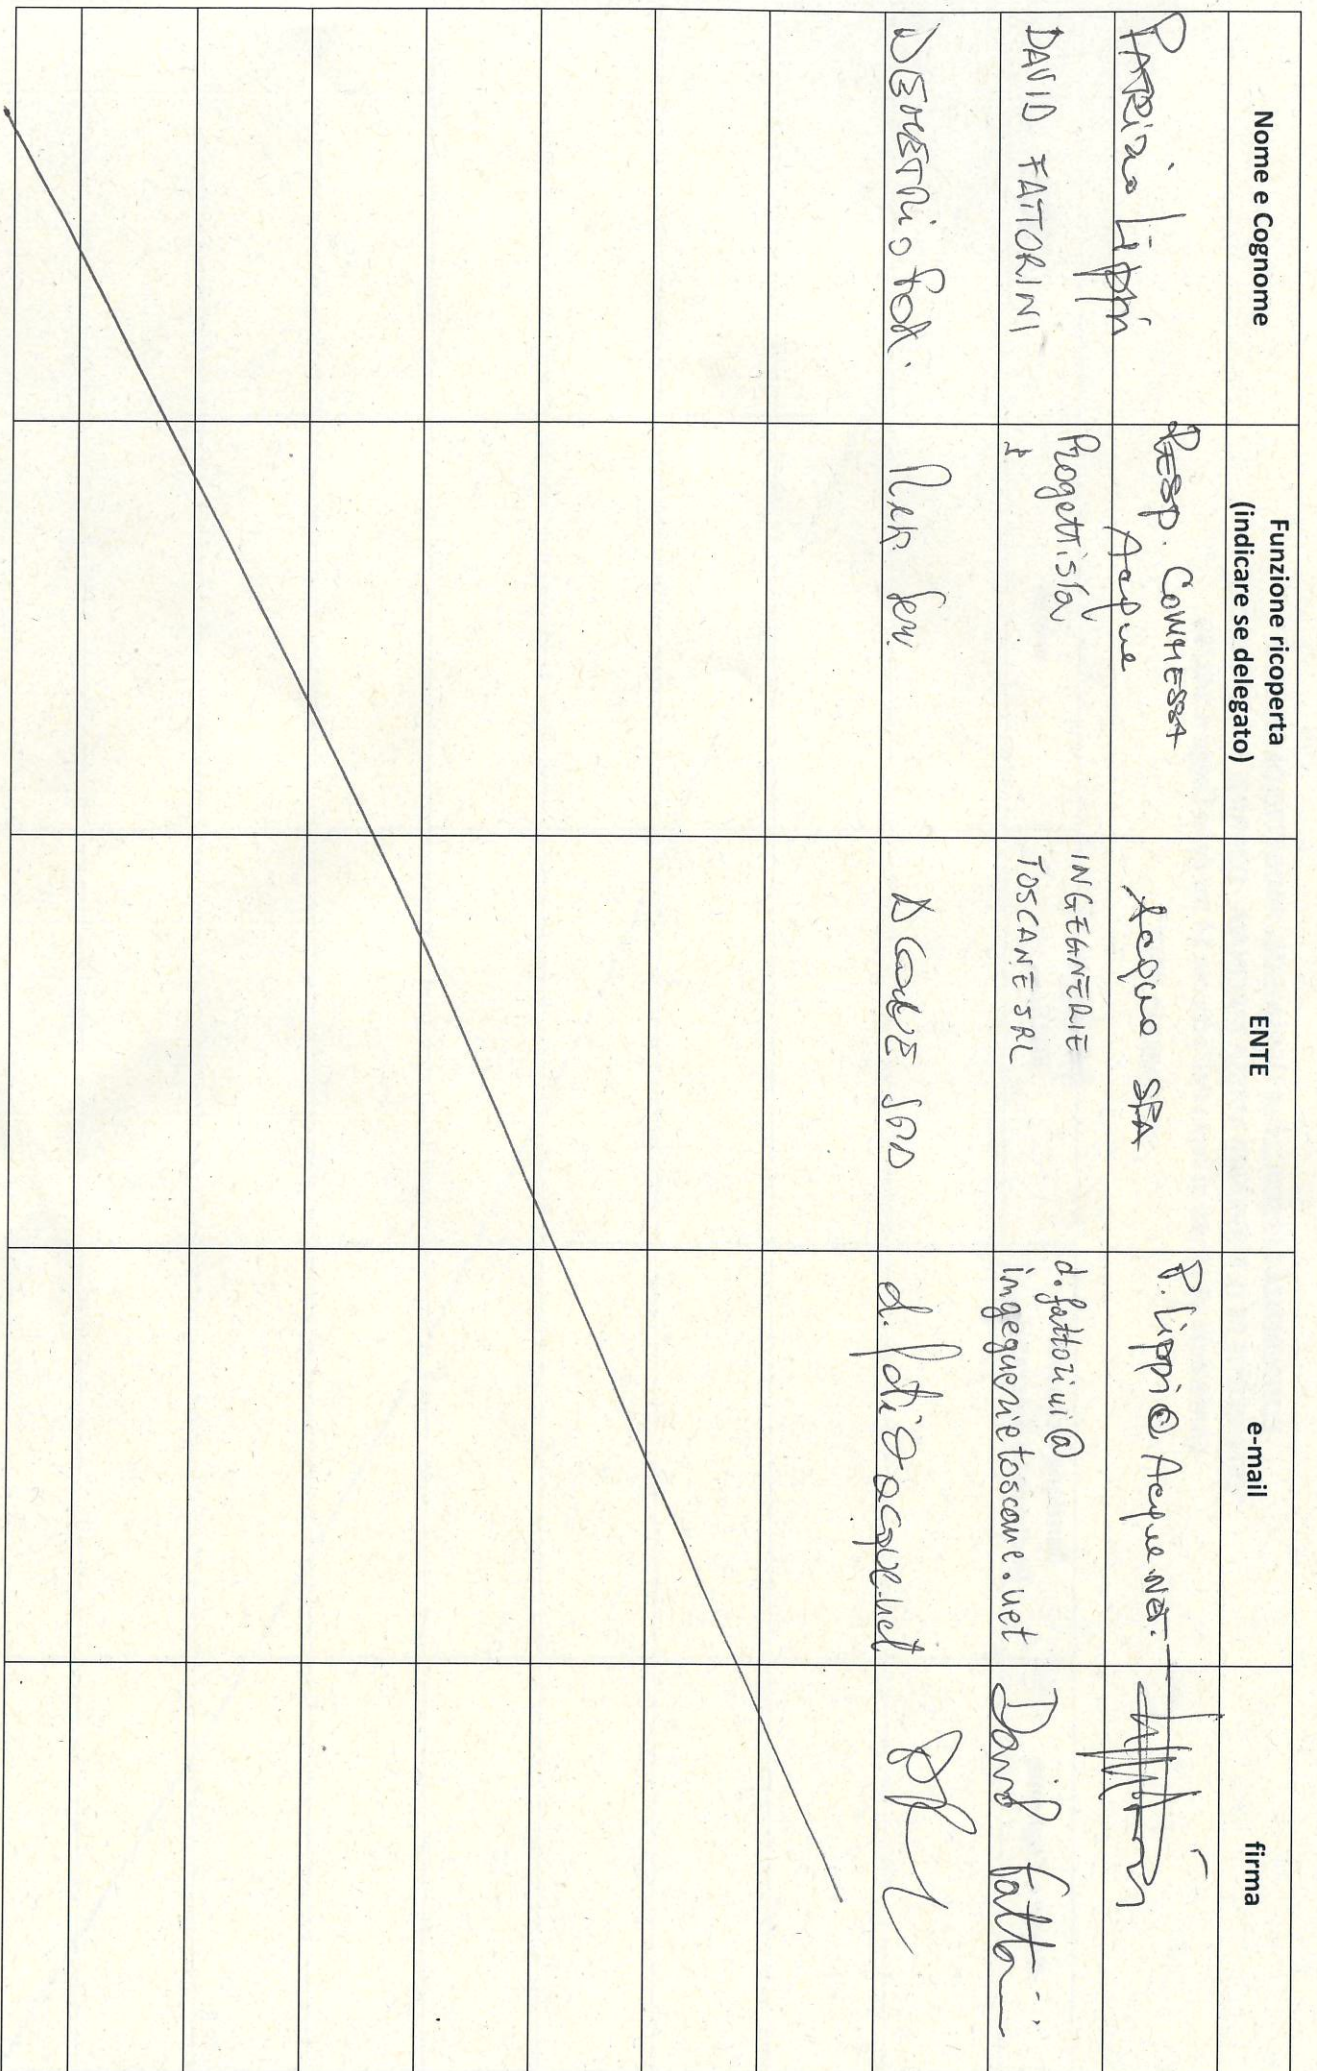 Nome e Cognome
Funzione ricoperta
(indicare se delegato)
ENTE
e-mail
firma
PATRIZIO Lippi
RESP. COMMESSA
Acque
Acque SPA
P.Lippi@Acque.NET
DAVID FATTORINI
Progettista
INGEGNERIE
TOSCANE SRL
d.fattorini@
ingegnerietoscane.net
David Fattorini
DEMETRIO
SPA